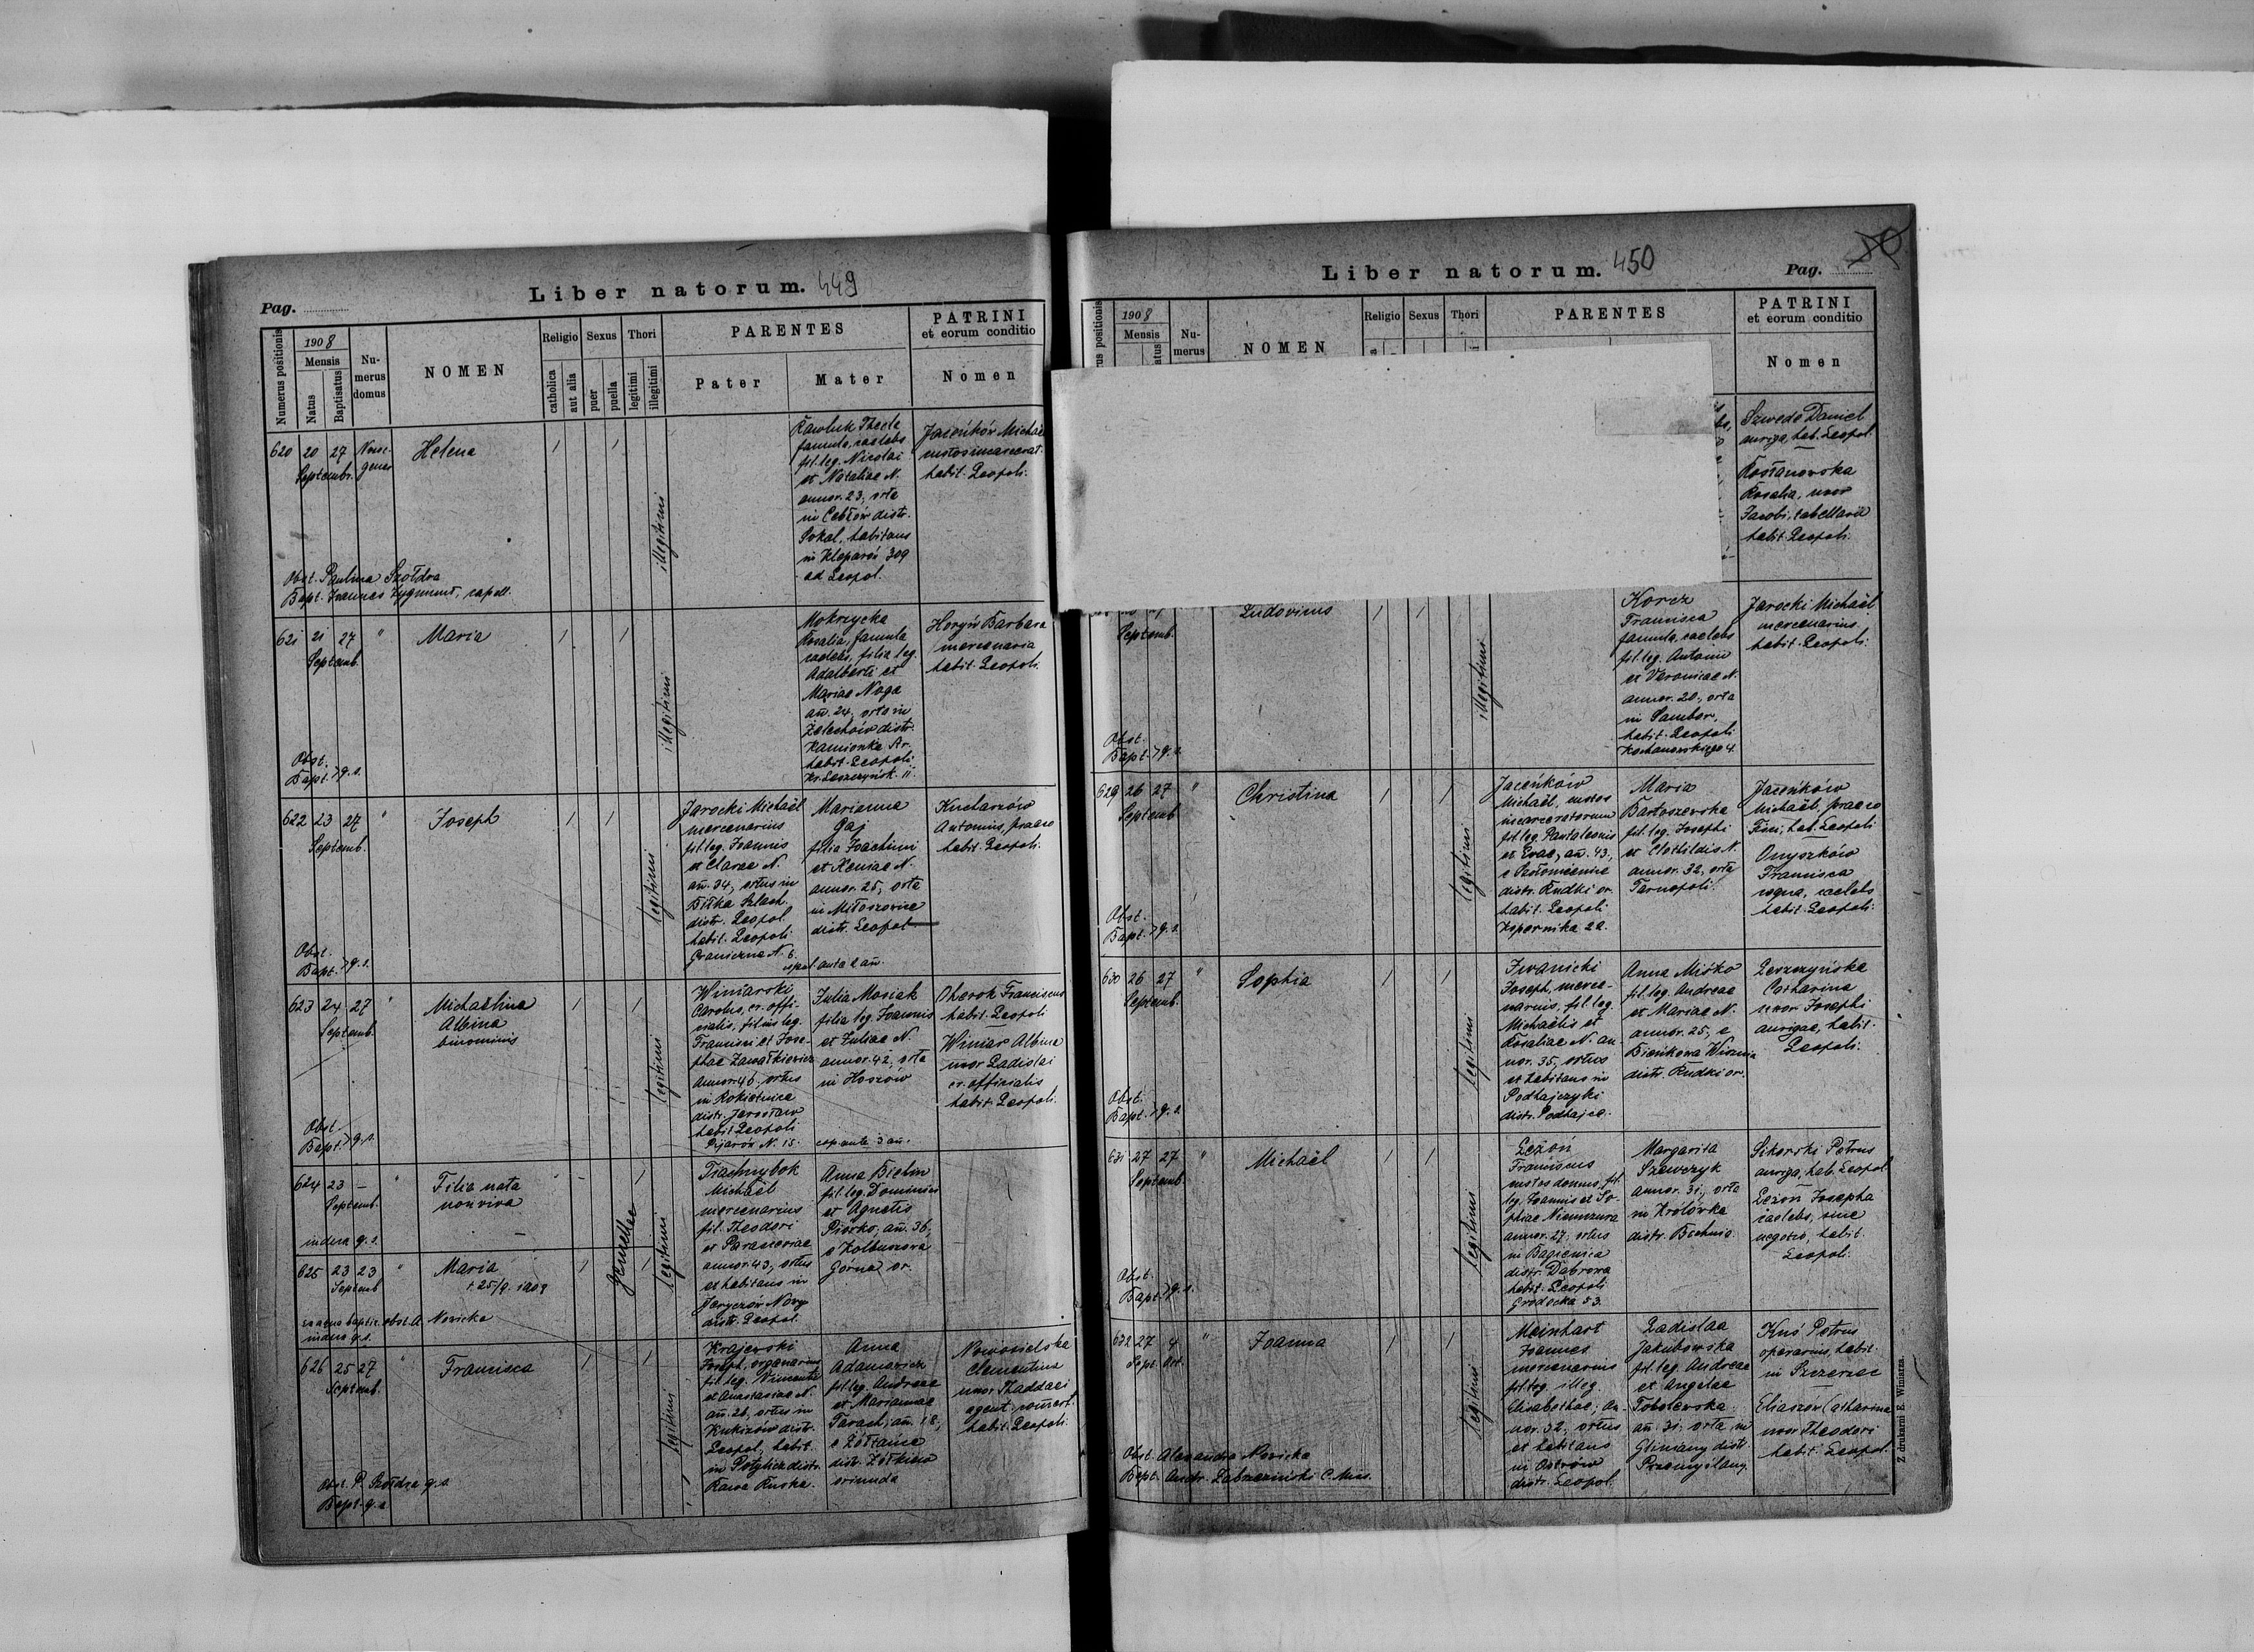 Liber natorum. 449
Pag.
Numerus positionis
1908
Mensis
Natus
Baptisatus
Nu-
merus
domus
NOMEN
Religio
catholica
aut alia
Sexus
puer
puella
Thori
legitimi
illegitimi
PARENTES
Pater
Mater
PATRINI
et eorum conditio
Nomen
620 20 27
Septembr.
Helena
illegitimi
Thecla
famula, caelebs
fil. leg. Nicolai
et Nataliae N.
annor. 23, orta
in Cebłów distr.
Sokal, habitans
in Kleparów 309
ad Leopol.
Jaceńków Michaël
habit. Leopoli.
Obst. Paulina Szołdra
Bapt. Joannes Zygmunt, capell.
621 21 27 "
Septemb.
Maria
illegitimi
Mokrzycka
Rosalia, famula
caelebs, filia leg.
Adalberti et
Mariae Noga
añ. 24, orta in
Żelechów distr.
Kamionka Str.
habit. Leopoli
Horyń Barbara
mercenaria
habit. Leopoli.
Obst.
Bapt. > q. s.
622 23 27 "
Septemb.
Joseph
legitimi
Jarocki Michaël
mercenarius
fil. leg. Joannis
et Clarae N.
añ. 34, ortus in
Biłka Szlach.
distr. Leopol.
habit. Leopoli
Graniczna N. 6.
Marianna
Gaj
filia Joachimi
et Xeniae N.
annor. 25, orta
in Miłoszowice
distr. Leopol.
Kucharzów
Antonius, praeco
habit. Leopoli.
Obst.
Bapt. > q. s.
623 24 27 "
Septemb.
Michaëlina
Albina
binominis
legitimi
Winiarski
Carolus, cr. offi-
cialis, filius leg.
Francisci et Jose-
phae Zawałkiewicz
annor. 46, ortus
in Rokietnica
distr. Jarosław
habit. Leopoli
Pijarów N. 15.
Julia Mosiak
filia leg. Joannis
et Juliae N.
annor. 42, orta
in Hoszów
cop. ante 3 añ.
Franciscus
habit. Leopoli
Winiar Albina
uxor Ladislai
cr. officialis
habit. Leopoli.
Obst.
Bapt. > q. s.
624 23 - "
Septemb.
Filia nata
non viva
indera q. s.
Gemellae
legitimi
Tiachnybok
Michaël
mercenarius
fil. Theodori
et Parasceviae
annor. 43, ortus
et habitans in
Jaryczów Nowy
distr. Leopol.
Anna Bielin
fil. leg. Dominici
et Agnetis
Piórko, añ. 36,
e Kolbuszowa
Górna or.
625 23 23 "
Septemb.
Maria
† 25/9. 1908
ex aqua baptiz. obst. A. Nowicka
indera q. s.
626 25 27 "
Septemb.
Francisca
legitimi
Krajewski
Joseph, organarius
fil. leg. Vincentii
et Anastasiae N.
añ. 26, ortus in
Kukizów distr.
Leopol, habit.
in Potylicz distr.
Rawa Ruska.
Anna
Adamowicz
fil. leg. Andreae
et Mariannae
Tarach, añ. 18,
e Żółtańce
distr. Żółkiew
oriunda
Nowosielska
Clementina
uxor Thaddaei
agent. comerc.
habit. Leopoli.
Obst. P. Szołdra q. s.
Bapt. q. s.
Liber natorum. 450
Pag.
1908
Mensis
Nu-
merus
NOMEN
Religio
Sexus
Thori
PARENTES
PATRINI
et eorum conditio
Nomen
Szwede Daniel
auriga, hab. Leopol.
Kostanowska
Rosalia, uxor
Jacobi,
habit. Leopoli.
Septemb.
Ludovicus
illegitimi
Korcz
Francisca
famula, caelebs
fil. leg. Antonii
et Veronicae N.
annor. 20, orta
in Sambor,
habit. Leopoli
Kochanowskiego 4.
Jarocki Michaël
mercenarius
habit. Leopoli.
Obst.
Bapt. > q. s.
629 26 27 "
Septemb.
Christina
legitimi
Jaceńków
Michaël, custos
incarceratorum
fil. leg. Pantaleonis
et Evae, añ. 43,
distr. Rudki or.
habit. Leopoli
Kopernika 22.
Maria
Bartoszewska
fil. leg. Josephi
et Clothildis N.
annor. 32, orta
Tarnopoli.
Jaceńków
Michaël, praeco
Fisci, hab. Leopoli
Onyszków
Francisca
coqua, caelebs
habit. Leopoli.
Obst.
Bapt. > q. s.
630 26 27 "
Septemb.
Sophia
legitimi
Iwanicki
Joseph, merce-
narius, fil. leg.
Michaëlis et
Rosaliae N. an-
nor. 35, ortus
et habitans in
Podhajczyki
distr. Podhajce.
Anna Miśko
fil. leg. Andreae
et Mariae N.
annor. 25, e
Bieńkowa Wisznia
distr. Rudki or.
Leszczyńska
Catharina
uxor Josephi
aurigae, habit.
Leopoli.
Obst.
Bapt. > q. s.
631 27 27 "
Septemb.
Michaël
legitimi
Leżoń
Franciscus
custos domus, fil.
leg. Joannis et So-
phiae Niemczura
annor. 27, ortus
in Bagienica
distr. Dąbrowa
habit. Leopoli
Grodecka 53.
Margarita
Szewczyk
annor. 31, orta
in Królówka
distr. Bochnia.
Sikorski Petrus
auriga, hab. Leopol.
Leżoń Josepha
caelebs, sine
negotio, habit.
Leopol.
Obst.
Bapt. > q. s.
632 27 4 "
Sept. Oct.
Joanna
legitimi
Meinhart
Joannes
mercenarius
fil. leg. illeg.
Elisabethae, an-
nor. 32, ortus
et habitans
in Ostrów
distr. Leopol.
Ladislaa
Jakubowska
fil. leg. Andreae
et Angelae
Tobolewska
añ. 31, orta in
Gliniany distr.
Przemyślany.
Knó Petrus
operarius, habit.
in Szczerzec
Eliaszów Catharina
uxor Theodori
habit. Leopol.
Obst. Alexandra Nowicka
Bapt. Andr. Zabrzeziński C. Miss.
Z drukarni E. Winiarza.